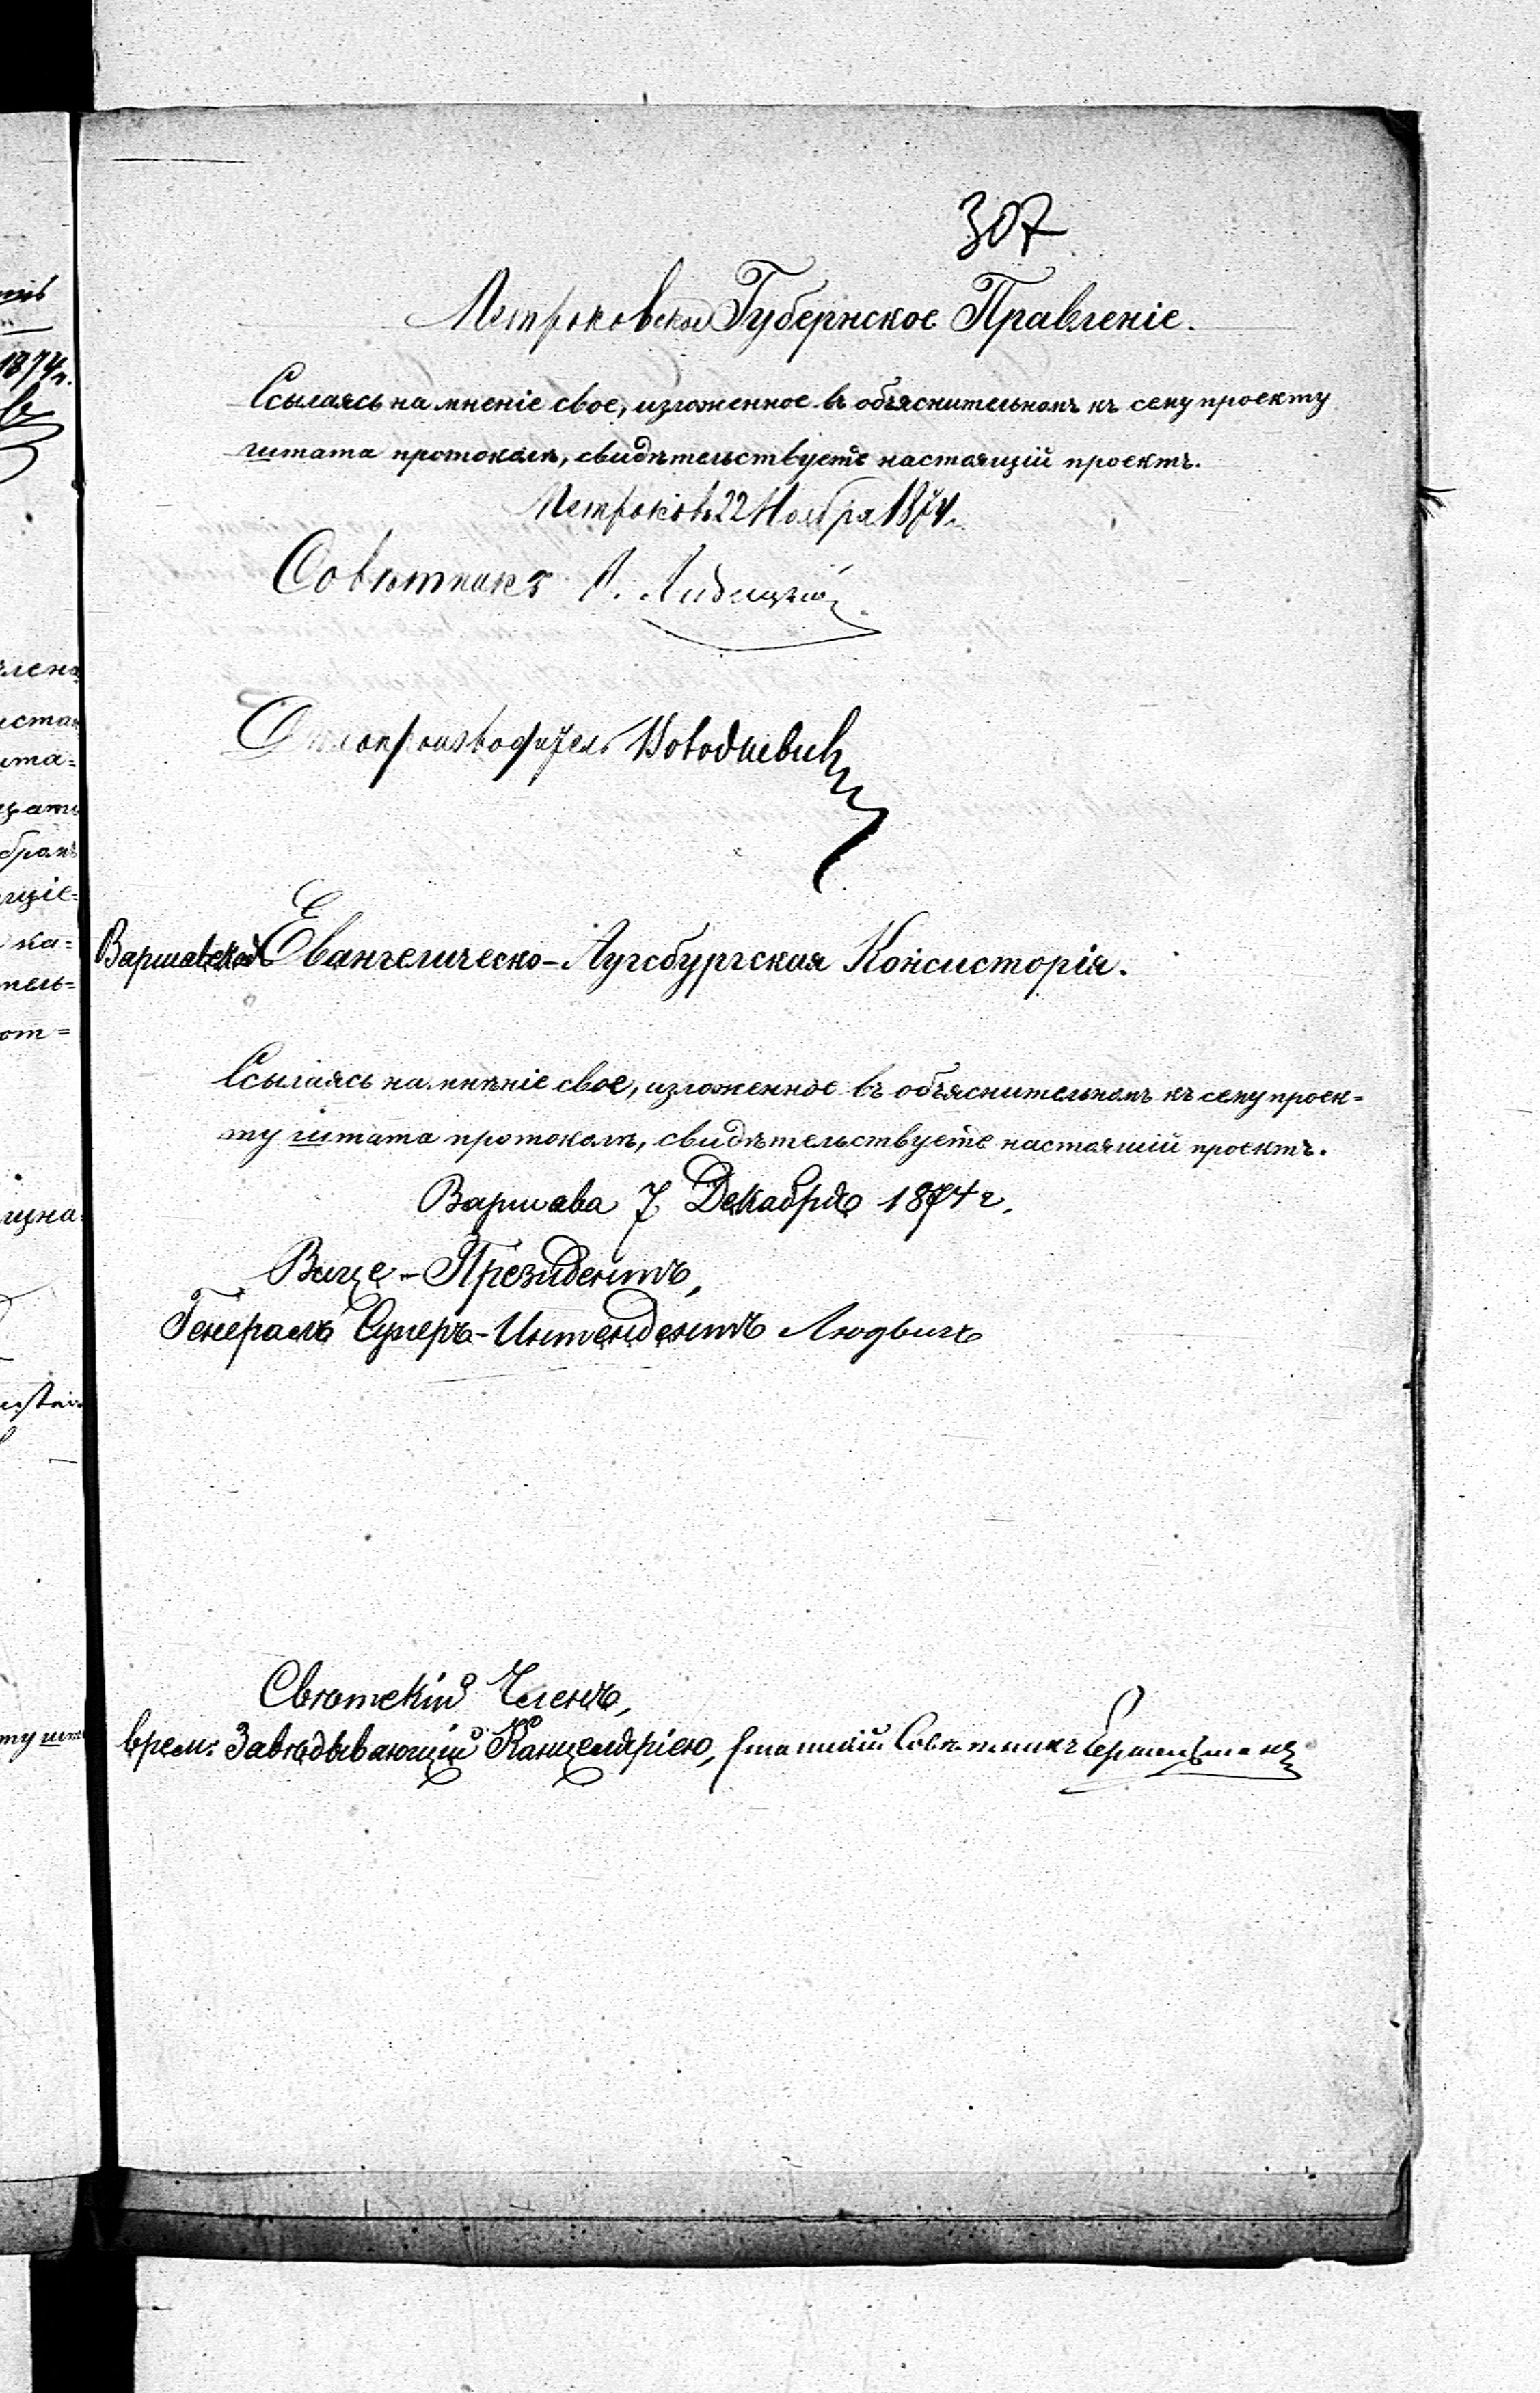 307
Петроковское Губернское Правленіе.
Ссылаясь на мненіе свое, изложенное въ объяснительномъ къ сему проекту
штата протоколѣ, свидѣтельствуетъ настоящій проектъ.
Петроковъ 22 Ноября 1874 г.
Совѣтникъ
Дѣлопроизводитель
Варшавская Евангелическо-Аугсбургская Консисторія.
Ссылаясь на мнѣніе свое, изложенное въ объяснительномъ къ сему проек=
ту штата протоколѣ, свидѣтельствуетъ настоящій проектъ.
Варшава 7 Декабря 1874 г.
Вице-Президентъ,
Генералъ Суперъ-Интендентъ Людвигъ
Свѣтскій Членъ,
врем: Завѣдывающій Канцеляріею, Статскій Совѣтникъ
1874 г.
лена
ита=
ка=
тель=
от=